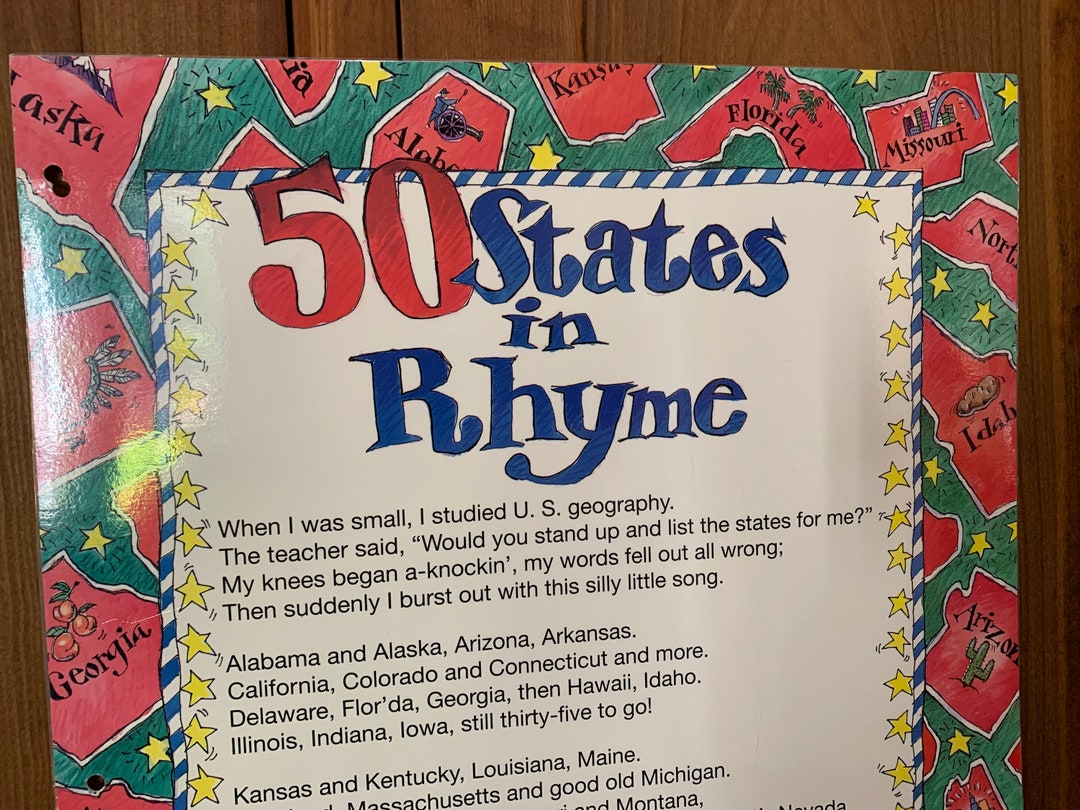 laska
ia
Alaba
Kansa
Florida
Missouri
50 States
in
Rhyme
North
Idah
Georgia
Arizon
When I was small, I studied U. S. geography.
The teacher said, “Would you stand up and list the states for me?”
My knees began a-knockin’, my words fell out all wrong;
Then suddenly I burst out with this silly little song.
Alabama and Alaska, Arizona, Arkansas.
California, Colorado and Connecticut and more.
Delaware, Flor’da, Georgia, then Hawaii, Idaho.
Illinois, Indiana, Iowa, still thirty-five to go!
Kansas and Kentucky, Louisiana, Maine.
Massachusetts and good old Michigan.
and Montana,
Nevada